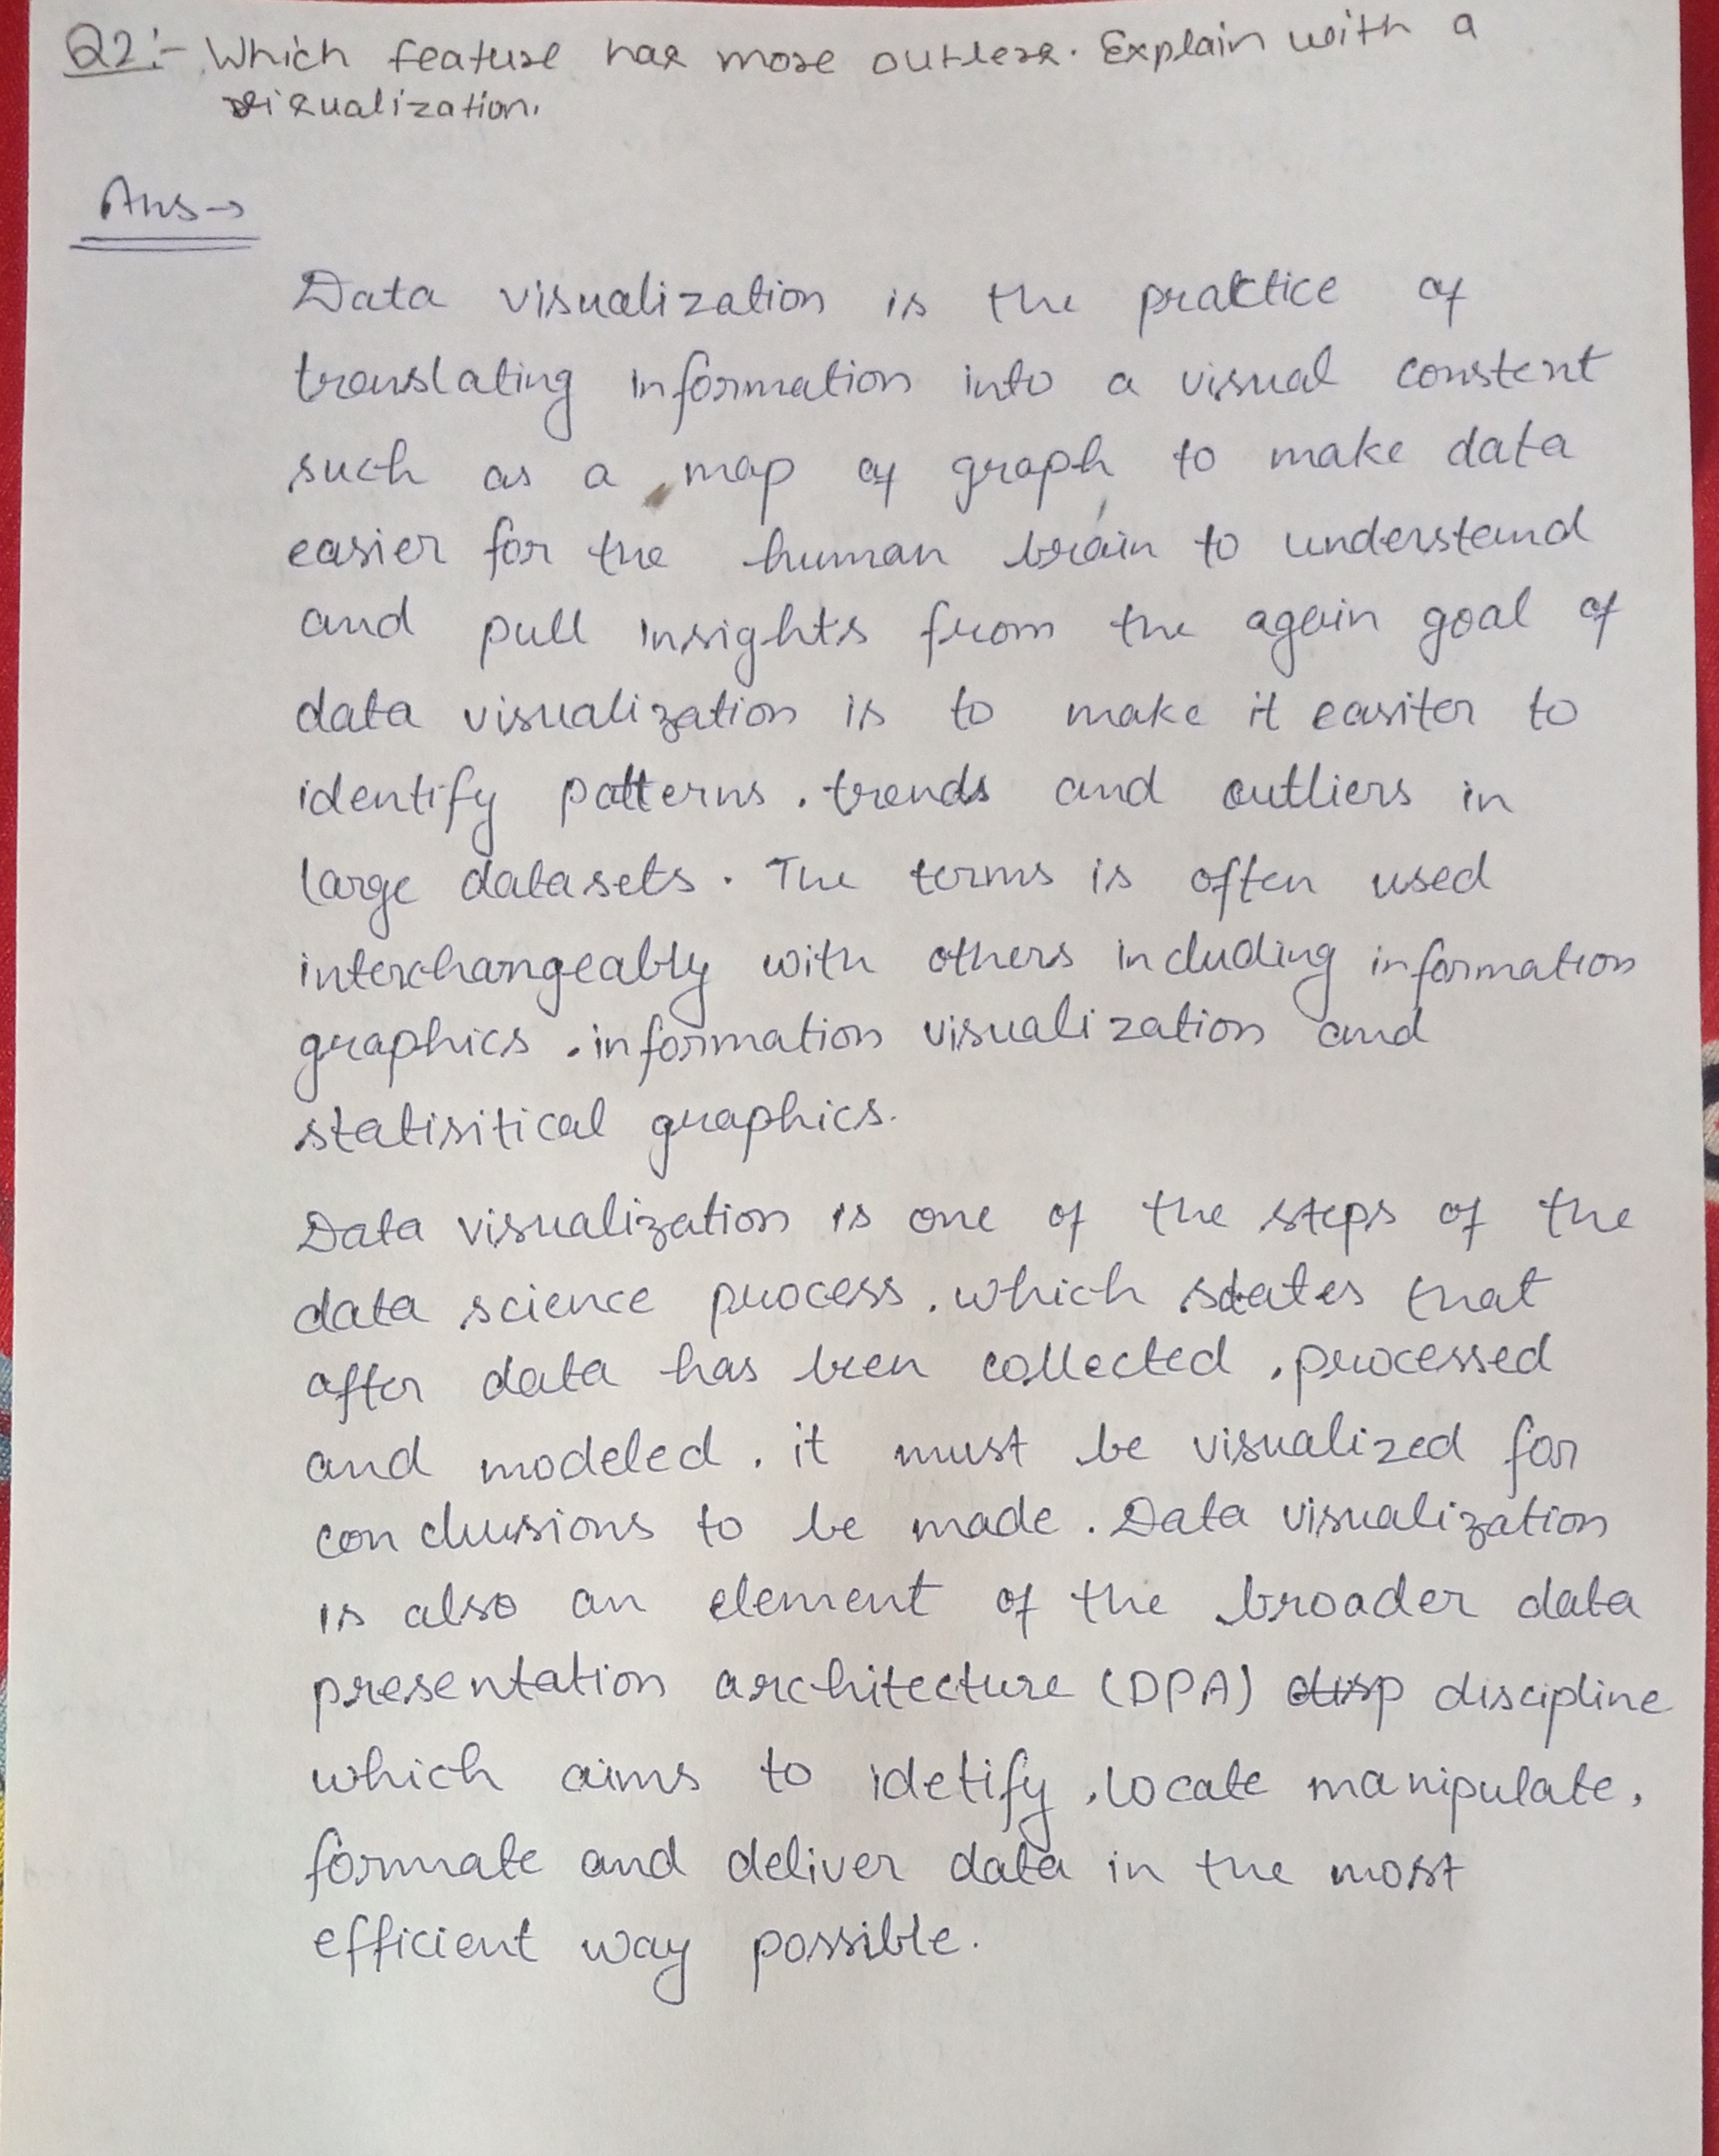 Q2:- Which feature has more outlers. Explain with a
visualization.
Ans→
Data visualization is the practice of
translating information into a visual constent
such as a map of graph to make data
easier for the human brain to understand
and pull insights from the again goal of
data visualization is to make it easiter to
identify patterns . trends and outliers in
large datasets . The terms is often used
interchangeably with others including information
graphics . information visualization and
statisitical graphics.
Data visualization is one of the steps of the
data science process . which states that
after data has been collected . processed
and modeled . it must be visualized for
conclusions to be made . Data visualization
is also an element of the broader data
presentation architecture (DPA) disp discipline
which aims to idetify , locate manipulate ,
formate and deliver data in the most
efficient way possible.